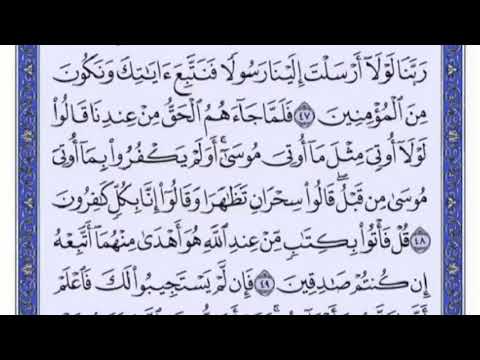 رَبَّنَا لَوْلَآ أَرْسَلْتَ إِلَيْنَا رَسُولًا فَنَتَّبِعَ ءَايَٰتِكَ وَنَكُونَ
مِنَ ٱلْمُؤْمِنِينَ ٤٧ فَلَمَّا جَآءَهُمُ ٱلْحَقُّ مِنْ عِندِنَا قَالُوا۟
لَوْلَآ أُوتِىَ مِثْلَ مَآ أُوتِىَ مُوسَىٰٓ ۚ أَوَلَمْ يَكْفُرُوا۟ بِمَآ أُوتِىَ
مُوسَىٰ مِن قَبْلُ ۖ قَالُوا۟ سِحْرَانِ تَظَٰهَرَا وَقَالُوٓا۟ إِنَّا بِكُلٍّ كَٰفِرُونَ
٤٨ قُلْ فَأْتُوا۟ بِكِتَٰبٍ مِّنْ عِندِ ٱللَّهِ هُوَ أَهْدَىٰ مِنْهُمَآ أَتَّبِعْهُ
إِن كُنتُمْ صَٰدِقِينَ ٤٩ فَإِن لَّمْ يَسْتَجِيبُوا۟ لَكَ فَٱعْلَمْ